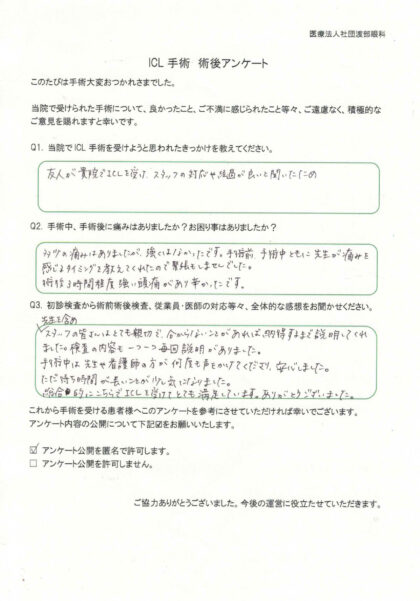 医療法人社団渡部眼科
ICL 手術 術後アンケート
このたびは手術大変おつかれさまでした。
当院で受けられた手術について、良かったこと、ご不満に感じられたこと等々、ご遠慮なく、積極的な
ご意見を賜れますと幸いです。
Q1. 当院で ICL 手術を受けようと思われたきっかけを教えてください。
友人が貴院でICLを受け、スタッフの対応や経過が良いと聞いたため
Q2. 手術中、手術後に痛みはありましたか？お困り事はありましたか？
多少の痛みはありましたが、強くはなかったです。手術前、手術中ともに先生が痛みを
感じるタイミングを教えてくれたので緊張もしませんでした。
術後3時間程度強い頭痛があり辛かったです。
Q3. 初診検査から術前術後検査、従業員・医師の対応等々、全体的な感想をお聞かせください。
先生を含め
スタッフの皆さんはとても親切で、分からないことがあれば、納得するまで説明してくれ
ました。検査の内容も一つ一つ毎回説明がありました。
手術中は先生や看護師の方が何度も声をかけてくださり、安心しました。
ただ待ち時間が長いことが少し気になりました。
総合的にこちらでICLを受けてとても満足しています。ありがとうございました。
これから手術を受ける患者様へこのアンケートを参考にさせていただければ幸いでございます。
アンケート内容の公開について下記図をお願いいたします。
☑ アンケート公開を匿名で許可します。
□ アンケート公開を許可しません。
ご協力ありがとうございました。今後の運営に役立たせていただきます。